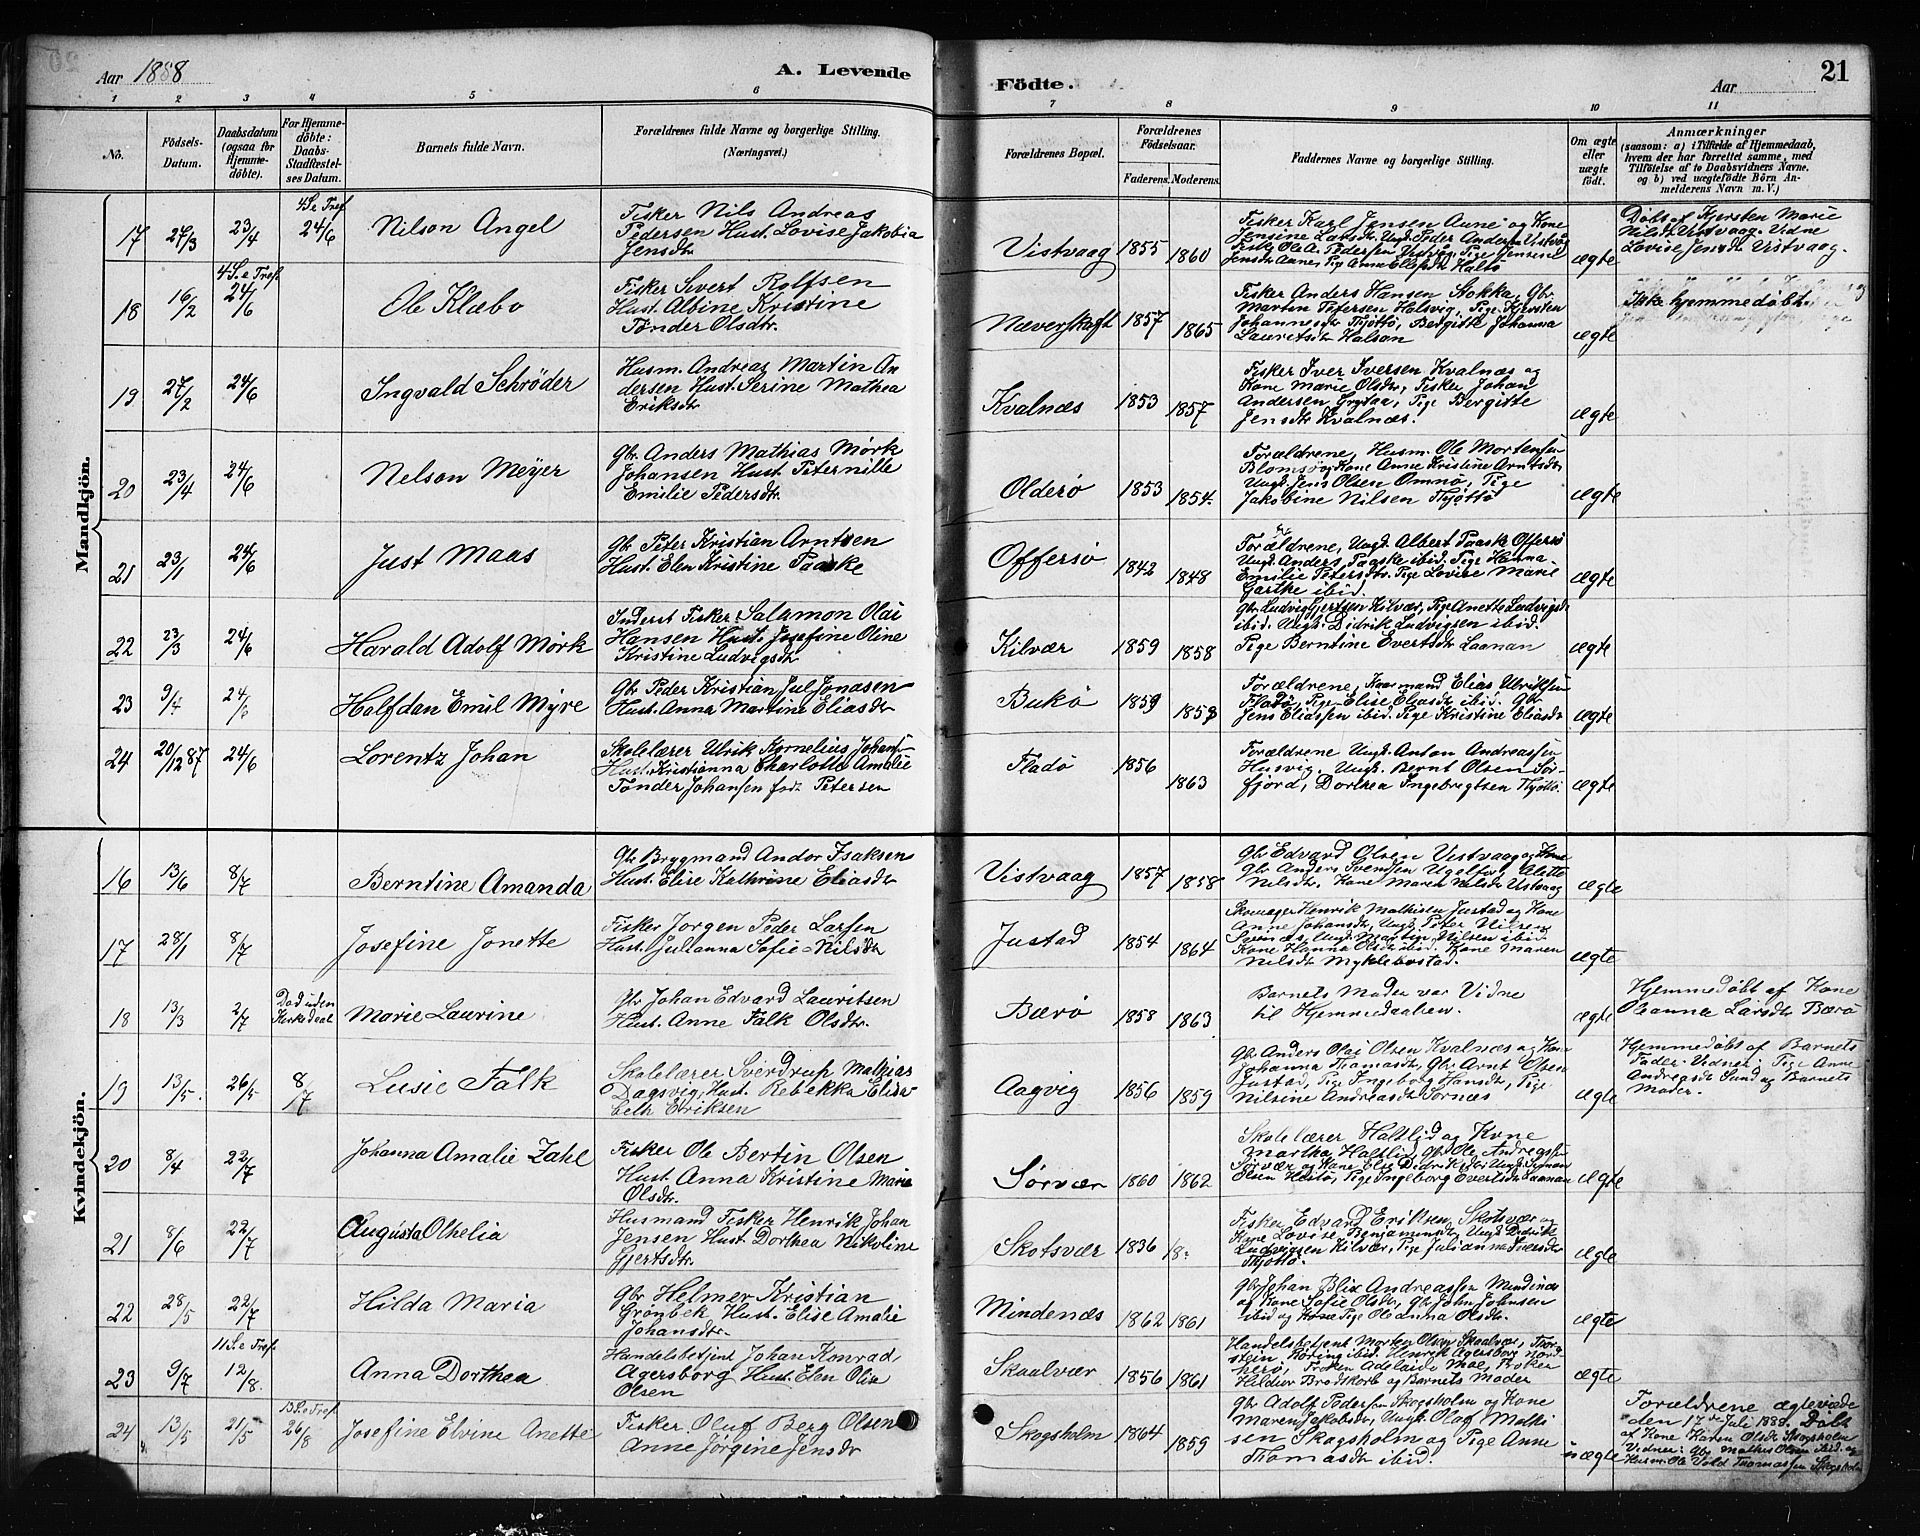 Aar 1888
A. Levende
Födte.
Aar
21
1 2 3 4 5 6 7 8 9 10 11
No.
Födsels-
Datum.
Daabsdatum
(ogsaa for
Hjemme-
döbte).
For Hjemme-
döbte:
Daabs-
Stadfæstel-
ses Datum.
Barnets fulde Navn.
Forældrenes fulde Navne og borgerlige Stilling.
(Næringsvei.)
Forældrenes Bopæl.
Forældrenes
Födselsaar.
Faderens. Moderens.
Faddernes Navne og borgerlige Stilling.
Om ægte
eller
uægte
födt.
Anmærkninger
(saasom: a) i Tilfælde af Hjemmedaab,
hvem der har forrettet samme, med
Tilföielse af to Daabsvidners Navne.
og b) ved uægtefödte Börn An-
melderens Navn m. V.)
Mandkjön.
17 27/3 23/4 4 S. e Tref. 24/6 Nilson Angel
Fisker Nils Andreas
Pedersen Hust. Lovise Jakobia
Jensdtr
Vistvaag 1855 1860
Fisker Karl Jensen Aune og Kone
Jensine Larsdtr. Ungk. Peder Andersen Vistvåg
ægte
Döbt af Kjersten Marie
Nilsdtr Vistvaag. Vidne
Lovise Jensdtr Vistvaag.
18 16/2 4 S. e Tref. 24/6 Ole Klæbo
Fisker Sivert Rolfsen
Hust. Albine Kristine
Tønder Olsdtr.
Næverskaft 1857 1865
Fisker Anders Hansen Stokka, Gbr.
Martin Petersen Halsvig, Pige Kjersten
Johannesdtr Thjöttö, Bergitte Johanna
Lauritsdtr Halsan
ægte
Ikke hjemmedøbt
19 27/2 24/6 Ingvald Schrøder
Husm. Andreas Martin An
dersen Hust. Serine Mathea
Eriksdtr
Kvalnæs 1853 1857
Fisker Iver Iversen Kvalnæs og
Kone Marie Olsdtr, Fisker Johan
Andersen Grytaa, Pige Bergitte
Jensdtr Kvalnæs.
ægte
20 23/4 24/6 Nelson Meyer
Gbr. Anders Mathias Mørk
Johansen Hust. Peternille
Emilie Pedersdtr.
Olderø 1853 1854.
Forældrene, Husm. Ole Mortensen
Blomsö og Kone Anne Kristine Arntsdtr
Ungk. Jens Olsen Omnø, Pige
Jakobine Nilsen Thjöttö
ægte
21 23/1 24/6 Just Maas
Gbr Peter Kristian Arntsen
Hust. Elen Kristine Paaske
Offersø 1842 1848
Forældrene, Ungk. Albert Paask Offersø
Ungk. Anders Paaske ibid. Pige Hanna
Emilie Petersdtr. Pige Lovise Marie
Gartke ibid.
ægte
22 23/3 24/6 Harald Adolf Mørk
Inderst Fisker Salamon Olai
Hansen Hust. Josefine Oline
Kristine Ludvigsdtr
Kilvær 1859 1858
Gbr Ludvig Gjertsen Kilvær, Pige Anette Ludvigsd.
ibid. Ungk. Didrik Ludvigsen ibid.
Pige Berntine Evertsdtr Laanan
ægte
23 9/4 24/6 Halfdan Emil Myre
Gbr Peder Kristian Jul Jonasen
Hust. Anna Martine Eliasdtr
Bukø 1859
Forældrene, Kaarmand Elias Ulriksen
Fladö, Pige Elise Eliasdtr ibid. Gbr
Jens Eliassen ibid. Pige Kristine Eliasdtr
ægte
24 20/12 87 24/6 Lorentz Johan
Skolelærer Ulrik Kornelius Johans-
Hust. Kristianna Charlotte Amalie
Tønder Johansen født Petersen
Fladö 1856 1863
Forældrene Ungk. Anton Andreassen
Husvig. Ungk. Bernt Olsen Sør-
fjord, Dorthea Ingebrigtsen Thjöttö.
ægte
Kvindekjön.
16 13/6 8/7 Berntine Amanda
Gbr Brygmand Andor Isaksen
Hust. Elise Kathrine Eliasdtr
Vistvaag 1857 1858
Gbr Edvard Olsen Vistvaag og Kone
Nilsdtr. Kone Maren Nilsdtr Vistvaag
ægte
17 28/1 8/7 Josefine Jonette
Fisker Jørgen Peder Larsen
Hust. Julianna Sofie Nilsdtr
Justad 1854 1864
Skomager Henrik Mathisen Justad og Kone
Anne Johansdtr, Ungk. Peter Nilsen
Svinæs, Ungk. Martin Nilsen ibid
Kone Hanna Olsdtr ibid. Kone Maren
Nilsdtr Myklebostad.
ægte
18 13/3 2/7 Død uden Kirkedaab Marie Laurine
Gbr Johan Edvard Lauritsen
Hust. Anne Falk Olsdtr.
Bærø 1858 1863
Barnets Moder var Vidne
til Hjemmedaaben.
ægte
Hjemmedøbt af Kone
Oleanna Larsdtr Bærö
19 13/5. 26/5 8/7 Lusie Falk
Skolelærer Sverdrup Mathias
Dagsvig, Hust. Rebekka Elisa
beth Eriksen
Aagvig 1856 1859
Gbr Anders Olai Olsen Kvalnæs og Kone
Johanna Thomasdtr, Gbr. Arnt Olsen
Justad, Pige Ingeborg Hansdtr, Pige
Nilsine Andreasdtr Sornæs
ægte
Hjemmedøbt af Barnets
Fader. Vidner: Pige Anne
Andreasdtr Sund og Barnets
Moder.
20 8/4 22/7 Johanna Amalie Zahl
Fisker Ole Bertin Olsen
Hust. Anna Kristine Marie
Olsdtr.
Sørvær 1860 1862
Skolelærer Haltlid og Kone
Martha Haltlid, Gbr Ole Andreassen
Sørvær og Kone Elie Didriksdtr Ungk. Simon
Olsen Hestö, Pige Ingeborg Evertsdtr Laanan
ægte
21 8/6 22/7 Augusta Othelia
Husmand Fisker Henrik Johan
Jensen Hust. Dorthea Nikoline
Gjertsdtr.
Skotsvær 1836 18
Fisker Edvard Eriksen Skotsvær og
Kone Lovise Benjaminsdtr, Ungk. Didrik
Ludvigsen Kilvær, Pige Julianna Iversdtr
Thjöttö.
ægte
22 28/5 22/7 Hilda Maria
Gbr Helmer Kristian
Grønbek Hust. Elise Amalie
Johansdtr.
Mindenæs 1862 1861
Gbr Johan Blix Andreassen Mindenæs
og Kone Sofie Olsdtr, Gbr John Johnsen
ibid og Kone Pige Oleanna Olsdtr.
ægte
23 9/7 11 S. e Tref. 12/8. Anna Dorthea
Handelsbetjent Johan Konrad
Agersborg Hust. Elen Olia
Olsen
Skaalvær 1856 1861
Handelsbetjent Morten Olsen Skaalvær, Thor-
stein Køring ibid. Henrik Agersborg, Nord
herø, Frøken Adelaide Moe, Frøken
Hildur Brodskorb og Barnets Moder
ægte
24 13/5 21/5 13 S. e Tref. 26/8 Josefine Elvine Anette
Fisker Oluf Berg Olsen
Anne Jörgine Jensdtr
Skogsholm 1864 1859
Gbr Adolf Pedersen Skogsholm og Kone
Maren Jakobsdtr, Ungk. Olaf Mathi
sen Skogsholm og Pige Anne
Thomasdtr ibid.
uægte
Forældrene ægteviede
den 17de Juli 1888. Døbt
af Kone Karen Olsdtr Skogsholm
Vidner: Gbr Mathis Olsen ibid. og
Husm. Ole Vold Thomassen Skogsholm